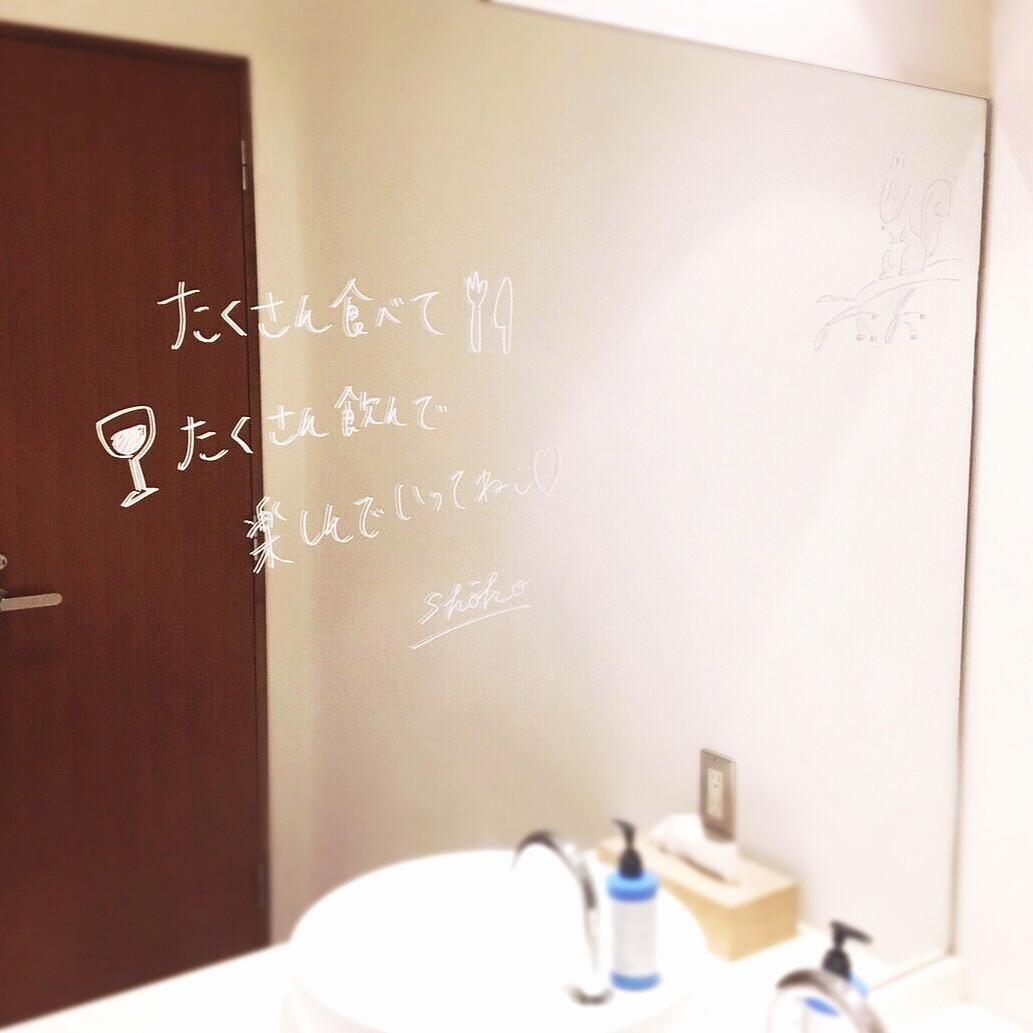 たくさん食べて
たくさん飲んで
楽しんでいってね♡
shōko